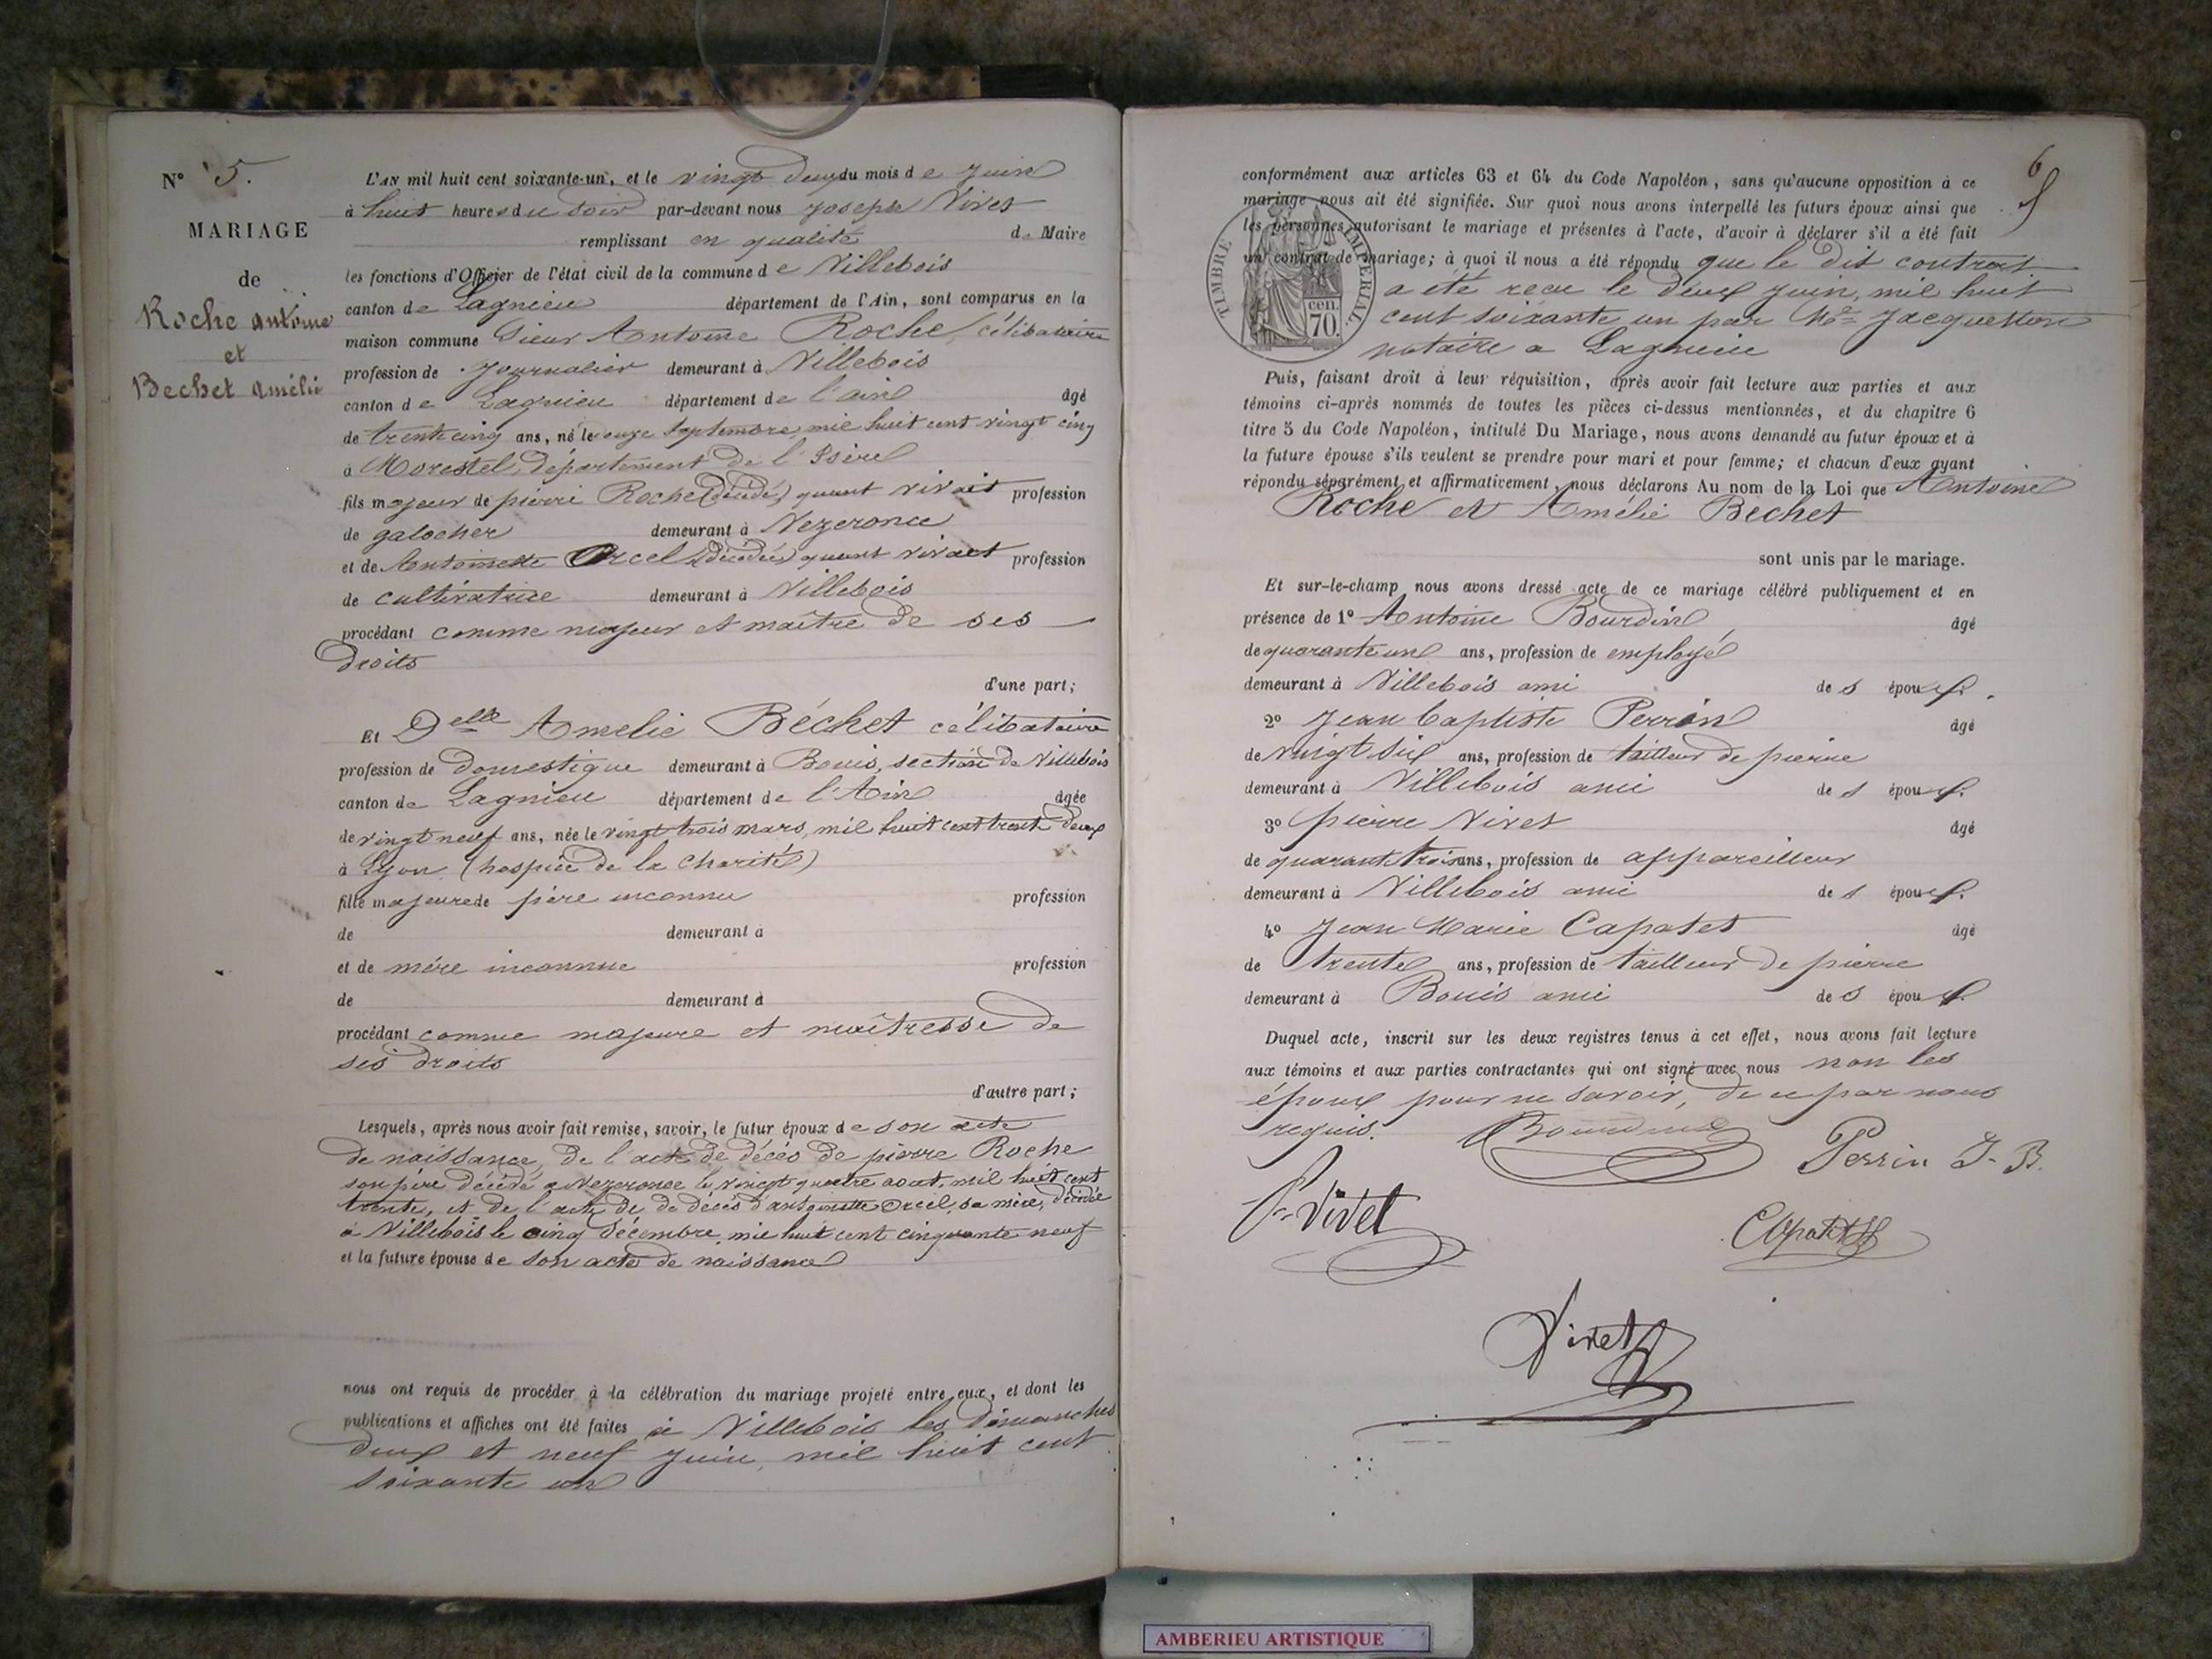 N° 5.
MARIAGE
de
Roche antoine
et
Bechet Amélie
L'AN mil huit cent soixante-un, et le vingt deux du mois de Juin
à huit heures du soir par-devant nous joseph Vivet
remplissant en qualité de Maire
les fonctions d'Officier de l'état civil de la commune de Villebois
canton de Lagnieu département de l'Ain, sont comparus en la
maison commune Sieur Antoine Roche, célibataire
profession de Journalier demeurant à Villebois
canton de Lagnieu département de l'ain âgé
de trente cinq ans, né le douze Septembre, mil huit cent vingt cinq
à Morestel, département de l'Isère
fils majeur de pierre Roche (décédé) quant vivait profession
de galocher demeurant à Vezeronce
et de Antoinette Orcel (décédée) quant vivait profession
de cultivatrice demeurant à Villebois
procédant comme majeur et maître de ses
droits
d'une part;
Et Delle Amelie Béchet célibataire
profession de Domestique demeurant à Bouis, section de Villebois
canton de Lagnieu département de l'Ain âgée
de vingt neuf ans, née le vingt trois mars, mil huit cent trente deux
à Lyon (hospice de la Charité)
fille majeure de père inconnu profession
de demeurant à
et de mère inconnue profession
de demeurant à
procédant comme majeure et maîtresse de
ses droits
d'autre part;
Lesquels, après nous avoir fait remise, savoir, le futur époux de son acte
de naissance, de l'acte de décès de pierre Roche
son père décédé a Vezeronce le vingt quatre aout, mil huit cent
trente, et de l'acte de de décès d'antoinette Orcel, sa mère, décédée
à Villebois le cinq décembre, mil huit cent cinquante neuf
et la future épouse de son acte de naissance
nous ont requis de procéder à la célébration du mariage projeté entre eux, et dont les
publications et affiches ont été faites à Villebois les dimanches
deux et neuf juin, mil huit cent
soixante un
6
conformément aux articles 63 et 64 du Code Napoléon, sans qu'aucune opposition à ce
mariage nous ait été signifiée. Sur quoi nous avons interpellé les futurs époux ainsi que
les personnes autorisant le mariage et présentes à l'acte, d'avoir à déclarer s'il a été fait
un contrat de mariage; à quoi il nous a été répondu que le dit contrat
a été reçu le deux juin, mil huit
cent soixante un par Me Jacquemon
notaire a Lagnieu
TIMBRE IMPÉRIAL
cen
70.
Puis, faisant droit à leur réquisition, après avoir fait lecture aux parties et aux
témoins ci-après nommés de toutes les pièces ci-dessus mentionnées, et du chapitre 6
titre 5 du Code Napoléon, intitulé Du Mariage, nous avons demandé au futur époux et à
la future épouse s'ils veulent se prendre pour mari et pour femme; et chacun d'eux ayant
répondu séparément et affirmativement, nous déclarons Au nom de la Loi que Antoine
Roche et Amélie Bechet
sont unis par le mariage.
Et sur-le-champ nous avons dressé acte de ce mariage célébré publiquement et en
présence de 1° Antoine Bourdin, âgé
de quarante un ans, profession de employé
demeurant à Villebois ami de s époux.
2° Jean baptiste Perrin âgé
de vingt six ans, profession de tailleur de pierre
demeurant à Villebois ami de s époux.
3° pierre Vivet âgé
de quarante trois ans, profession de appareilleur
demeurant à Villebois ami de s époux.
4° Jean Marie Capatet âgé
de trente ans, profession de tailleur de pierre
demeurant à Bouis ami de s époux.
Duquel acte, inscrit sur les deux registres tenus à cet effet, nous avons fait lecture
aux témoins et aux parties contractantes qui ont signé avec nous non les
époux pour ne savoir, de ce par nous
requis. Bourdin Perrin J-B.
P. Vivet Capatet
Vivet
AMBERIEU ARTISTIQUE